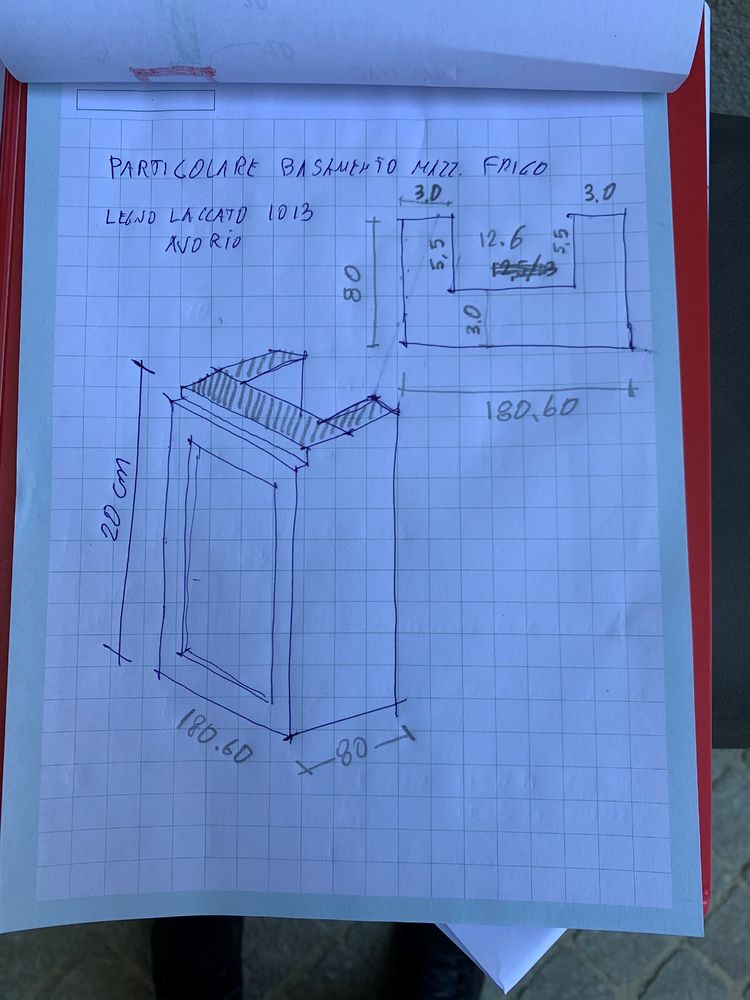 PARTICOLARE BASAMENTO MAZZ. FRIGO
LEGNO LACCATO 1013
AVORIO
3.0
3.0
80
5,5
12.6
5,5
3.0
180.60
20 cm
180.60
80